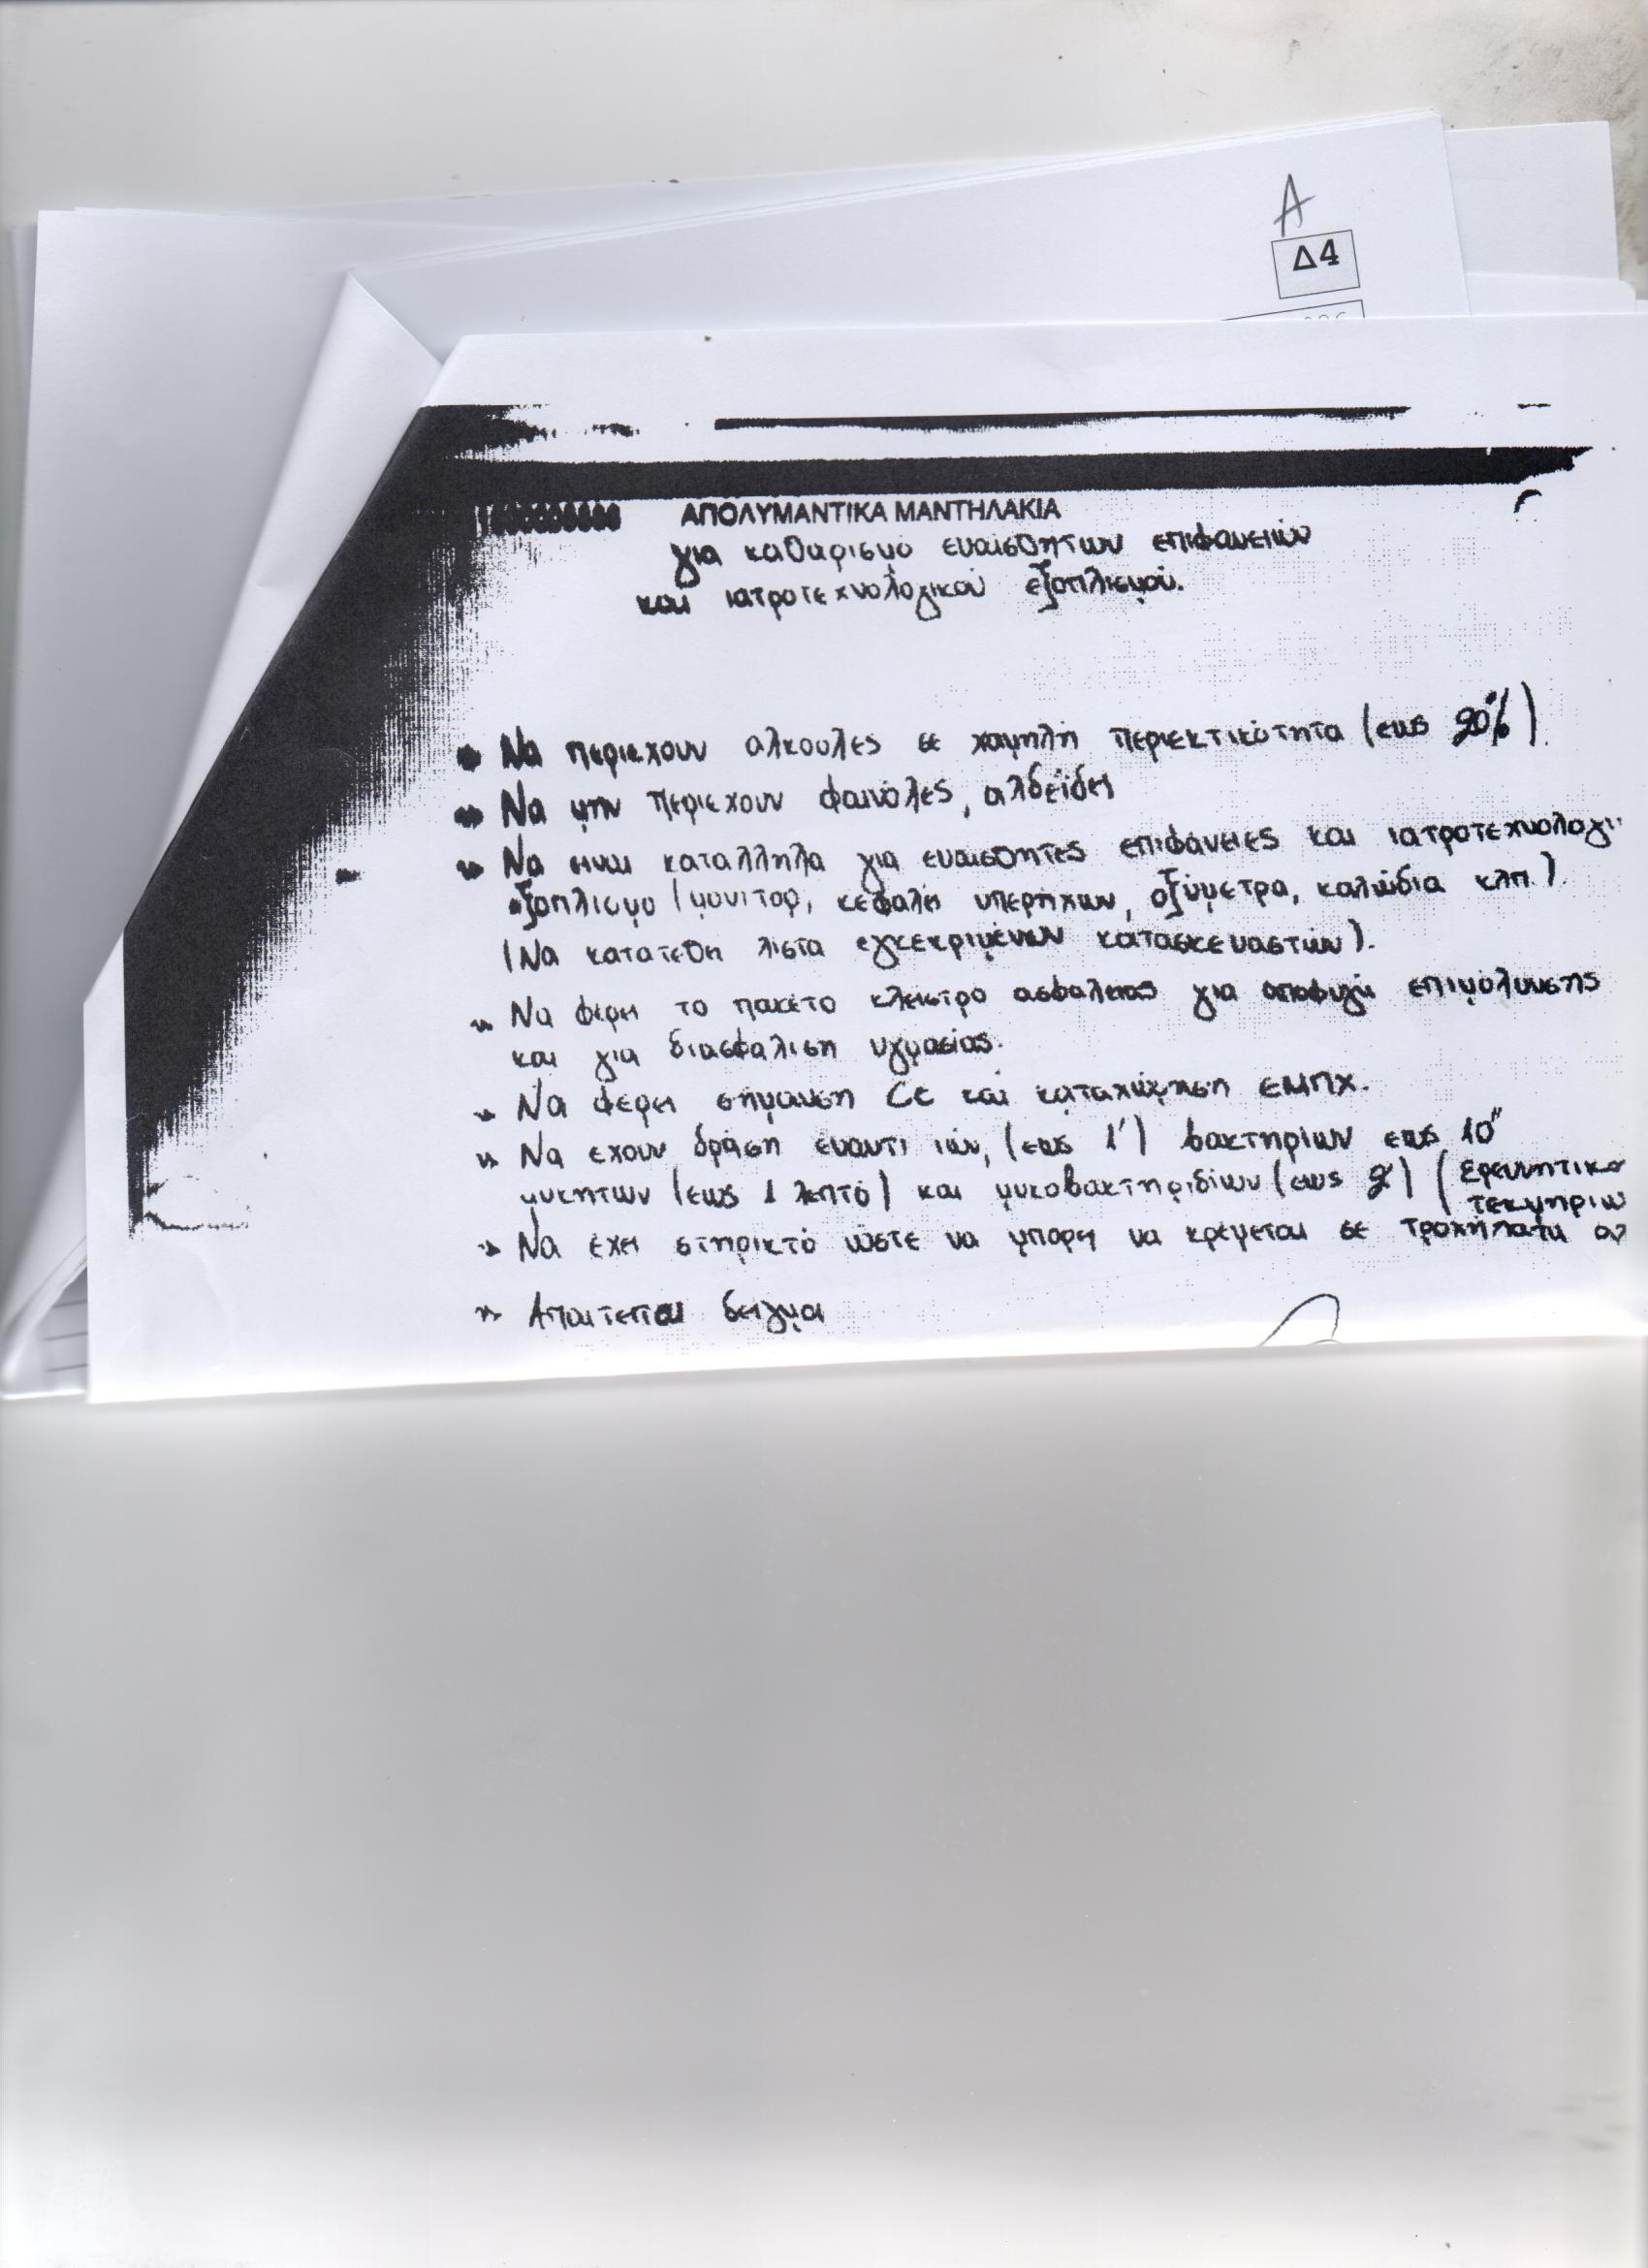 Α
Δ4
ΑΠΟΛΥΜΑΝΤΙΚΑ ΜΑΝΤΗΛΑΚΙΑ
για καθαρισμό ευαίσθητων επιφανειών
και ιατροτεχνολογικού εξοπλισμού.
Να περιεχουν αλκουλες σε χαμηλή περιεκτικότητα (εως 20%).
Να μην περιεχουν φαινόλες, αλδεϊδει
Να ειναι καταλληλα για ευαισθητες επιφάνειες και ιατροτεχνολογι
εξοπλισμο (μονιτορ, κεφαλή υπερήχων, οξύμετρα, καλώδια κλπ).
(Να κατατεθη λιστα εγκεκριμένων κατασκευαστών).
Να φέρει το πακέτο κλειστρο ασφαλειας για αποφυγή επιμόλυνσης
και για διασφάλιση υγρασίας.
Να φερει σήμανση CE και καταχώρηση ΕΜΠΧ.
Να εχουν δράση έναντι ιών, (εως 1') βακτηρίων εως 10"
μυκητων (εως 1 λεπτό) και μυκοβακτηριδίων (εως 2') (ερευνητικα
τεκμηριω
Να έχει στηρικτό ώστε να μπορει να κρέμεται σε τροχήλατα
Απαιτειται δειγμα